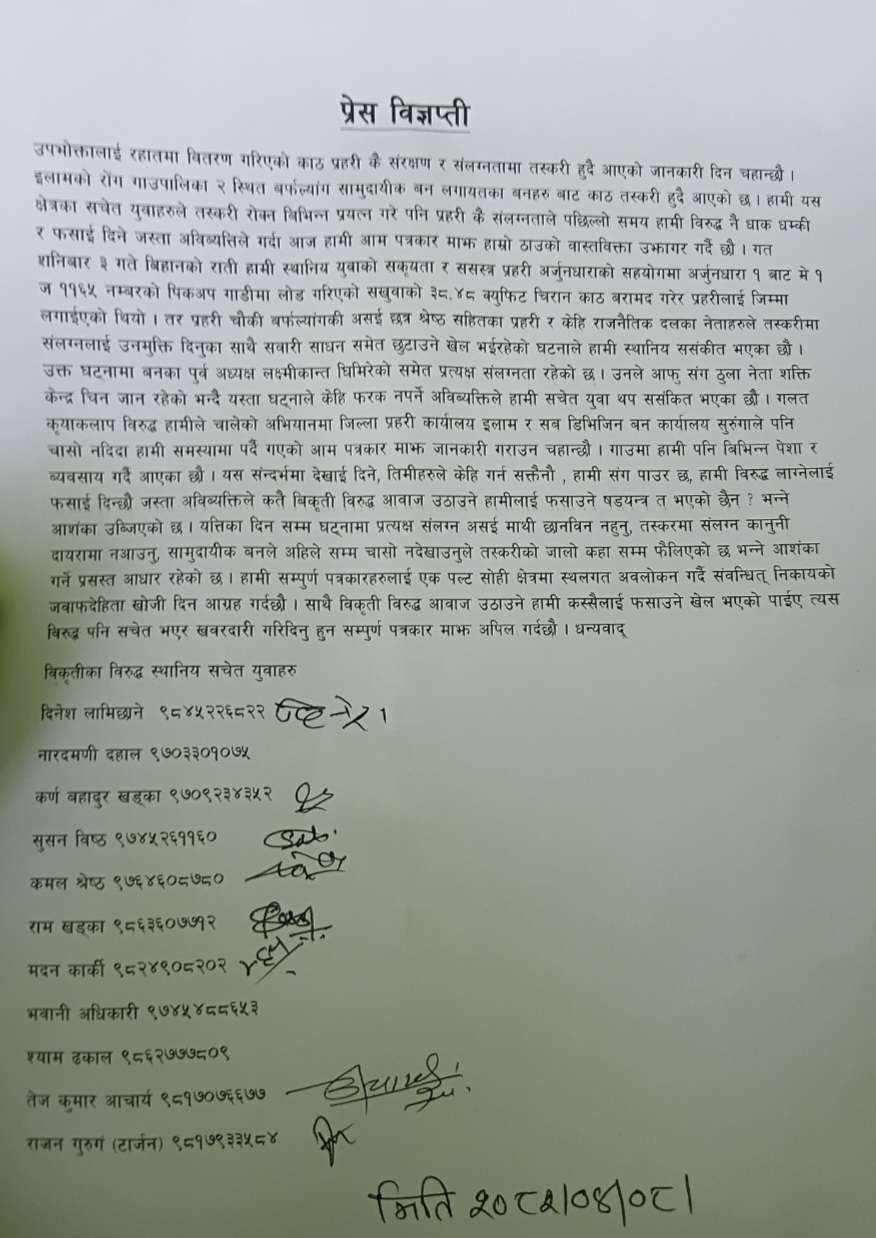 प्रेस विज्ञप्ती
उपभोक्तालाई रहातमा वितरण गरिएको काठ प्रहरी कै संरक्षण र संलग्नतामा तस्करी हुदै आएको जानकारी दिन चहान्छौ ।
इलामको रोंग गाउपालिका २ स्थित बर्फल्यांग सामुदायीक बन लगायतका बनहरु बाट काठ तस्करी हुदै आएको छ । हामी यस
क्षेत्रका सचेत युवाहरुले तस्करी रोक्न बिभिन्न प्रयत्न गरे पनि प्रहरी कै संलग्नताले पछिल्लो समय हामी विरुद्ध नै धाक धम्की
र फसाई दिने जस्ता अविब्यत्तिले गर्दा आज हामी आम पत्रकार माझ हाम्रो ठाउको वास्तविक्ता उझागर गर्दै छौ । गत
शनिबार ३ गते बिहानको राती हामी स्थानिय युबाको सकृयता र ससस्त्र प्रहरी अर्जुनधाराको सहयोगमा अर्जुनधारा १ बाट मे १
ज ११६५ नम्बरको पिकअप गाडीमा लोड गरिएको सखुवाको ३८.४८ क्युफिट चिरान काठ बरामद गरेर प्रहरीलाई जिम्मा
लगाईएको थियो । तर प्रहरी चौकी बर्फल्यांगकी असई छत्र श्रेष्ठ सहितका प्रहरी र केहि राजनैतिक दलका नेताहरुले तस्करीमा
संलग्नलाई उनमुक्ति दिनुका साथै सबारी साधन समेत छुटाउने खेल भईरहेको घटनाले हामी स्थानिय ससंकीत भएका छौ ।
उक्त घट्नामा बनका पुर्व अध्यक्ष लक्ष्मीकान्त घिमिरेको समेत प्रत्यक्ष संलग्नता रहेको छ । उनले आफु संग ठुला नेता शक्ति
केन्द्र चिन जान रहेको भन्दै यस्ता घट्नाले केहि फरक नपर्ने अविब्यक्तिले हामी सचेत युवा थप ससंकित भएका छौ । गलत
कृयाकलाप विरुद्ध हामीले चालेको अभियानमा जिल्ला प्रहरी कार्यालय इलाम र सब डिभिजिन बन कार्यालय सुरुंगाले पनि
चासो नदिदा हामी समस्यामा पर्दै गएको आम पत्रकार माझ जानकारी गराउन चहान्छौ । गाउमा हामी पनि बिभिन्न पेशा र
ब्यबसाय गर्दै आएका छौ । यस संन्दर्भमा देखाई दिने, तिमीहरुले केहि गर्न सक्तैनौ , हामी संग पाउर छ, हामी विरुद्ध लाग्नेलाई
फसाई दिन्छौ जस्ता अविब्यक्तिले कतै बिकृती विरुद्ध आवाज उठाउने हामीलाई फसाउने षडयन्त्र त भएको छैन ? भन्ने
आशंका उब्जिएको छ । यत्तिका दिन सम्म घट्नामा प्रत्यक्ष संलग्न असई माथी छानविन नहुनु, तस्करमा संलग्न कानुनी
दायरामा नआउनु, सामुदायीक बनले अहिले सम्म चासो नदेखाउनुले तस्करीको जालो कहा सम्म फैलिएको छ भन्ने आशंका
गर्ने प्रसस्त आधार रहेको छ । हामी सम्पुर्ण पत्रकारहरुलाई एक पल्ट सोही क्षेत्रमा स्थलगत अवलोकन गर्दै संवन्धित् निकायको
जवाफदेहिता खोजी दिन आग्रह गर्दछौ । साथै विकृती विरुद्ध आवाज उठाउने हामी कस्सैलाई फसाउने खेल भएको पाईए त्यस
बिरुद्ध पनि सचेत भएर खवरदारी गरिदिनु हुन सम्पुर्ण पत्रकार माझ अपिल गर्दछौ । धन्यवाद्
विकृतीका विरुद्ध स्थानिय सचेत युवाहरु
दिनेश लामिछाने ९८४५२२६८२२
नारदमणी दहाल ९७०३३०१०७५
कर्ण बहादुर खड्का ९७०९२३४३५२
सुसन विष्ठ ९७४५२६११६०
कमल श्रेष्ठ ९७६४६०८७८०
राम खड्का ९८६३६०७७१२
मदन कार्की ९८२४९०८२०२
भवानी अधिकारी ९७४५४८८६५३
श्याम ढकाल ९८६२७७७८०९
तेज कुमार आचार्य ९८१७०७६६७७
राजन गुरुगं (टार्जन) ९८१७९३३५८४
मिति २०८२।०४।०८।